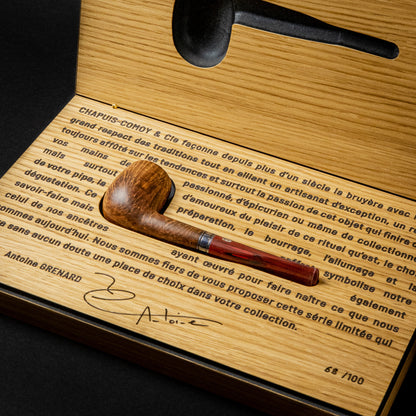 CHAPUIS-COMOY & Cie façonne depuis plus d'un siècle la bruyère avec
grand respect des traditions tout en alliant un artisanat d'exception, un
toujours affûté sur les tendances et surtout la passion de cet objet qui finira
vos mains passionné, d'épicurien ou même de collectionneur
mais surtout d'amoureux du plaisir de ce rituel qu'est, le choix
de votre pipe, préparation, le bourrage, l'allumage et la
dégustation. Ce symbolise notre
savoir-faire mais également
celui de nos ancêtres ayant œuvré pour faire naître ce que nous
sommes aujourd'hui. Nous sommes fiers de vous proposer cette série limitée qui
sans aucun doute une place de choix dans votre collection.
Antoine GRENARD
Antoine
68 /100